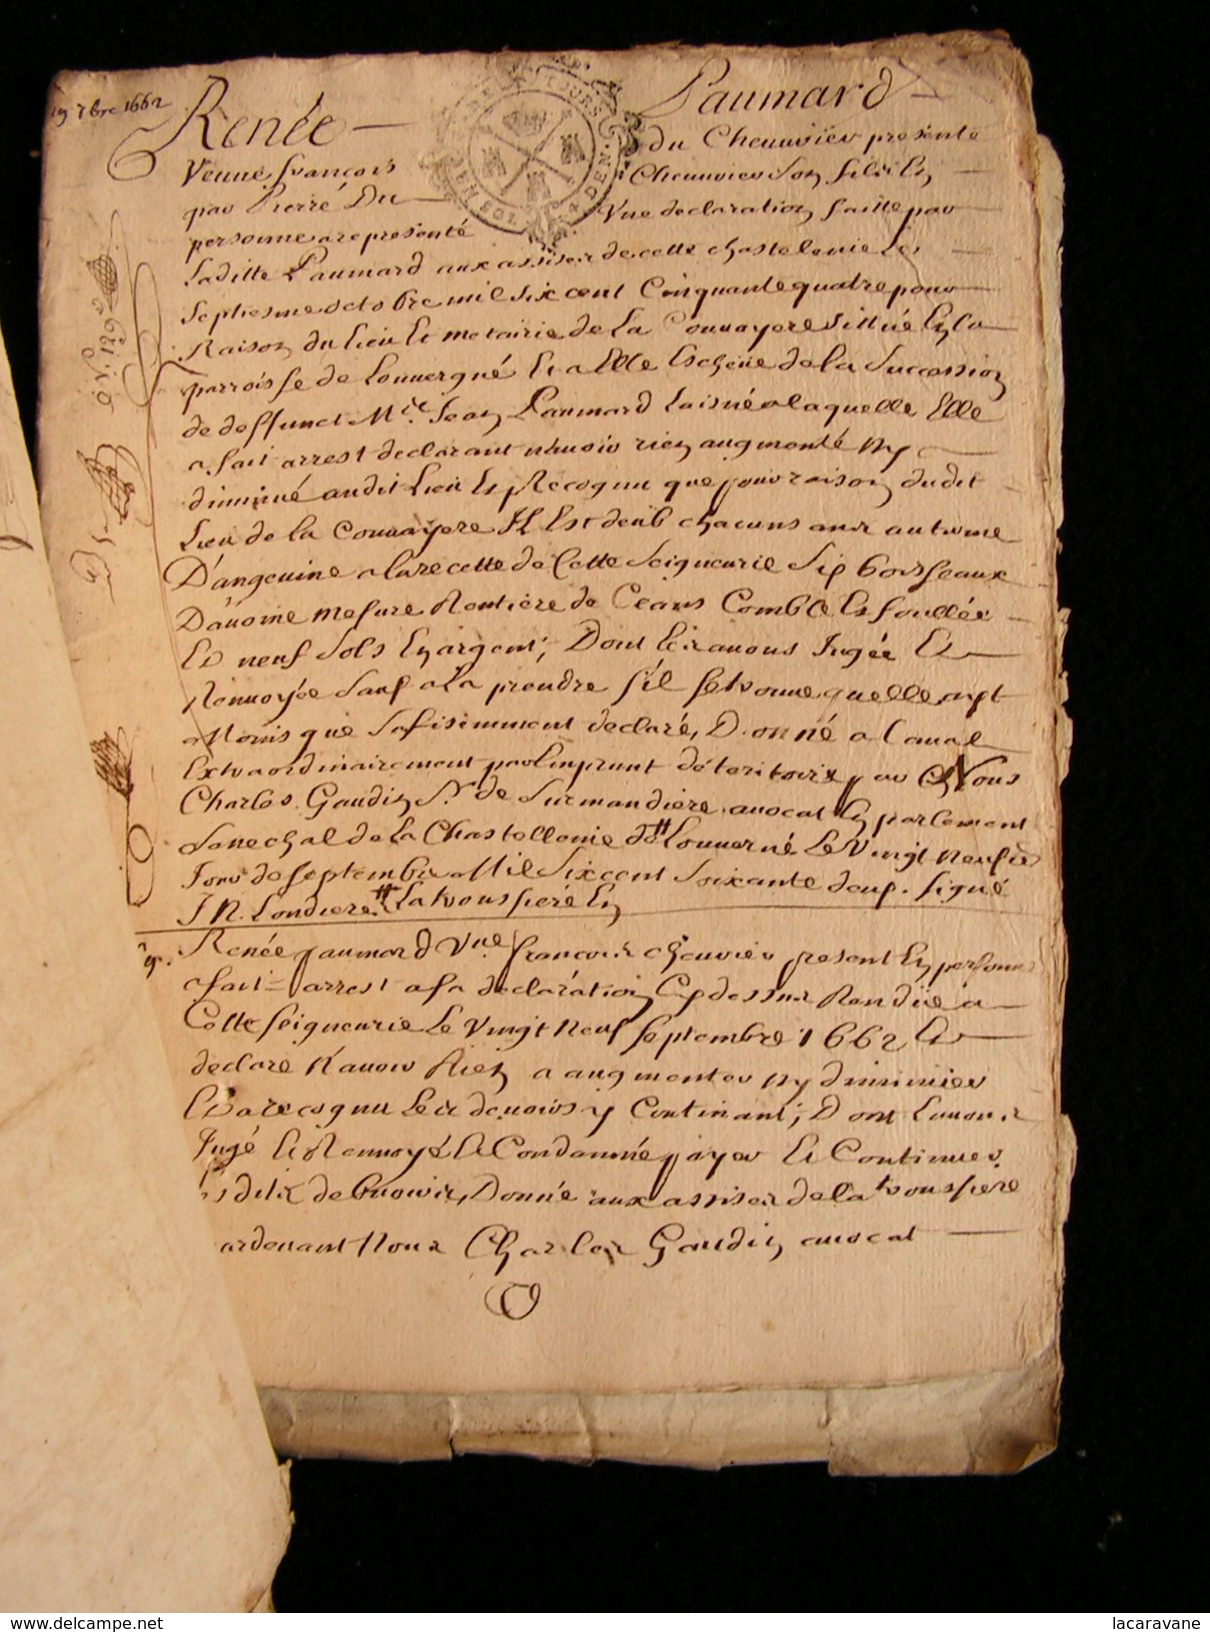 29 7bre 1662
Renée Paumard
Veuve françois du Cheuuvier presente
par Pierré Du Cheuuvier son filz En
personne a representé Vne declaration faitte par
Laditte Paumard aux assises de cette chastelenie Le
Septiesme octobre mil six cent Cinquante quatre pour
Raison du lieu Et metairie de La Couuayere sittué En la
parroisse de Louuergné Et a Elle Escheüe de la Succession
de deffunct Mre. Jean Paumard Laisné a laquelle Elle
a fait arrest declarant n'auoir rien augmenté ny
diminué audit Lieu Et Recognu que pour raison dudit
Lieu de la Couuayere Il Est deub chacuns ans au terme
D'angeuine a la recette de Cette Seigneurie Six boisseaux
D'auoine mesure Rentiere de Ceans Comble Et foullée
Et neuf Sols En argent; Dont Lerauons Jugée Et
Renuoyée Sauf a La prendre s'il se trouue quelle ayt
Moins que Sufisemment declaré, Donné a Laual
Extraordinairement par Emprunt de teritoire par Nous
Charles Gaudin Sr. de Surmandiere auocat En parlement
Senechal de La Chastellenie de Louuerné Le Vingt neufie
Jour de Septembre Mil Six cent Soixante deux. Signé
J N. Londiere. # La troussiere En
Renée paumard Vue. francois cheuuier present En personne
a fait arrest a sa declaration Cy dessus Rendüe a
Cette seigneurie Le Vingt Neuf septembre 1662 Et
declare N'auoir Rien a augmenter ny diminuer
Et a recognu Les deuoirs y Continant; Dont Lauons
Jugé Et Renuoyé Et Condamné payer Et Continuer
Lesdits debuoirs, Donné aux assises de la troussiere
ardeuant Nous Charles Gaudin auocat